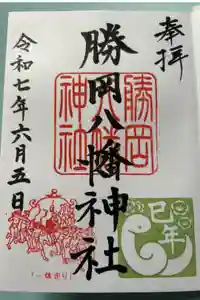 奉拝
勝岡八幡神社
令和七年六月五日
勝岡
神社
巳年